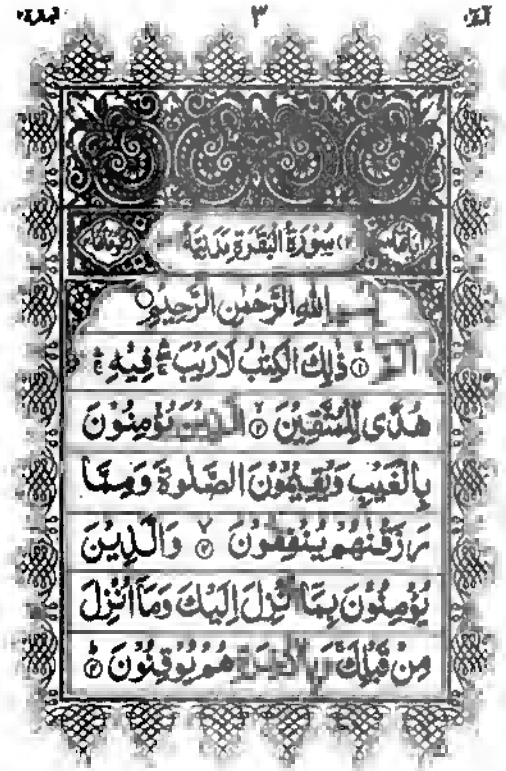 البقرة ٢ ٣ الٓمّٓ ١
(٢) سُوْرَةُ الْبَقَرَةِ مَدَنِيَّةٌ
بِسْمِ اللهِ الرَّحْمٰنِ الرَّحِيْمِ
الٓمّٓ ۚ ﴿١﴾ ذٰلِكَ الْكِتٰبُ لَا رَيْبَ ۛ فِيْهِ ۛ
هُدًى لِّلْمُتَّقِيْنَ ۙ ﴿٢﴾ الَّذِيْنَ يُؤْمِنُوْنَ
بِالْغَيْبِ وَيُقِيْمُوْنَ الصَّلٰوةَ وَمِمَّا
رَزَقْنٰهُمْ يُنْفِقُوْنَ ۙ ﴿٣﴾ وَالَّذِيْنَ
يُؤْمِنُوْنَ بِمَآ اُنْزِلَ اِلَيْكَ وَمَآ اُنْزِلَ
مِنْ قَبْلِكَ ۚ وَبِالْاٰخِرَةِ هُمْ يُوْقِنُوْنَ ؕ ﴿٤﴾